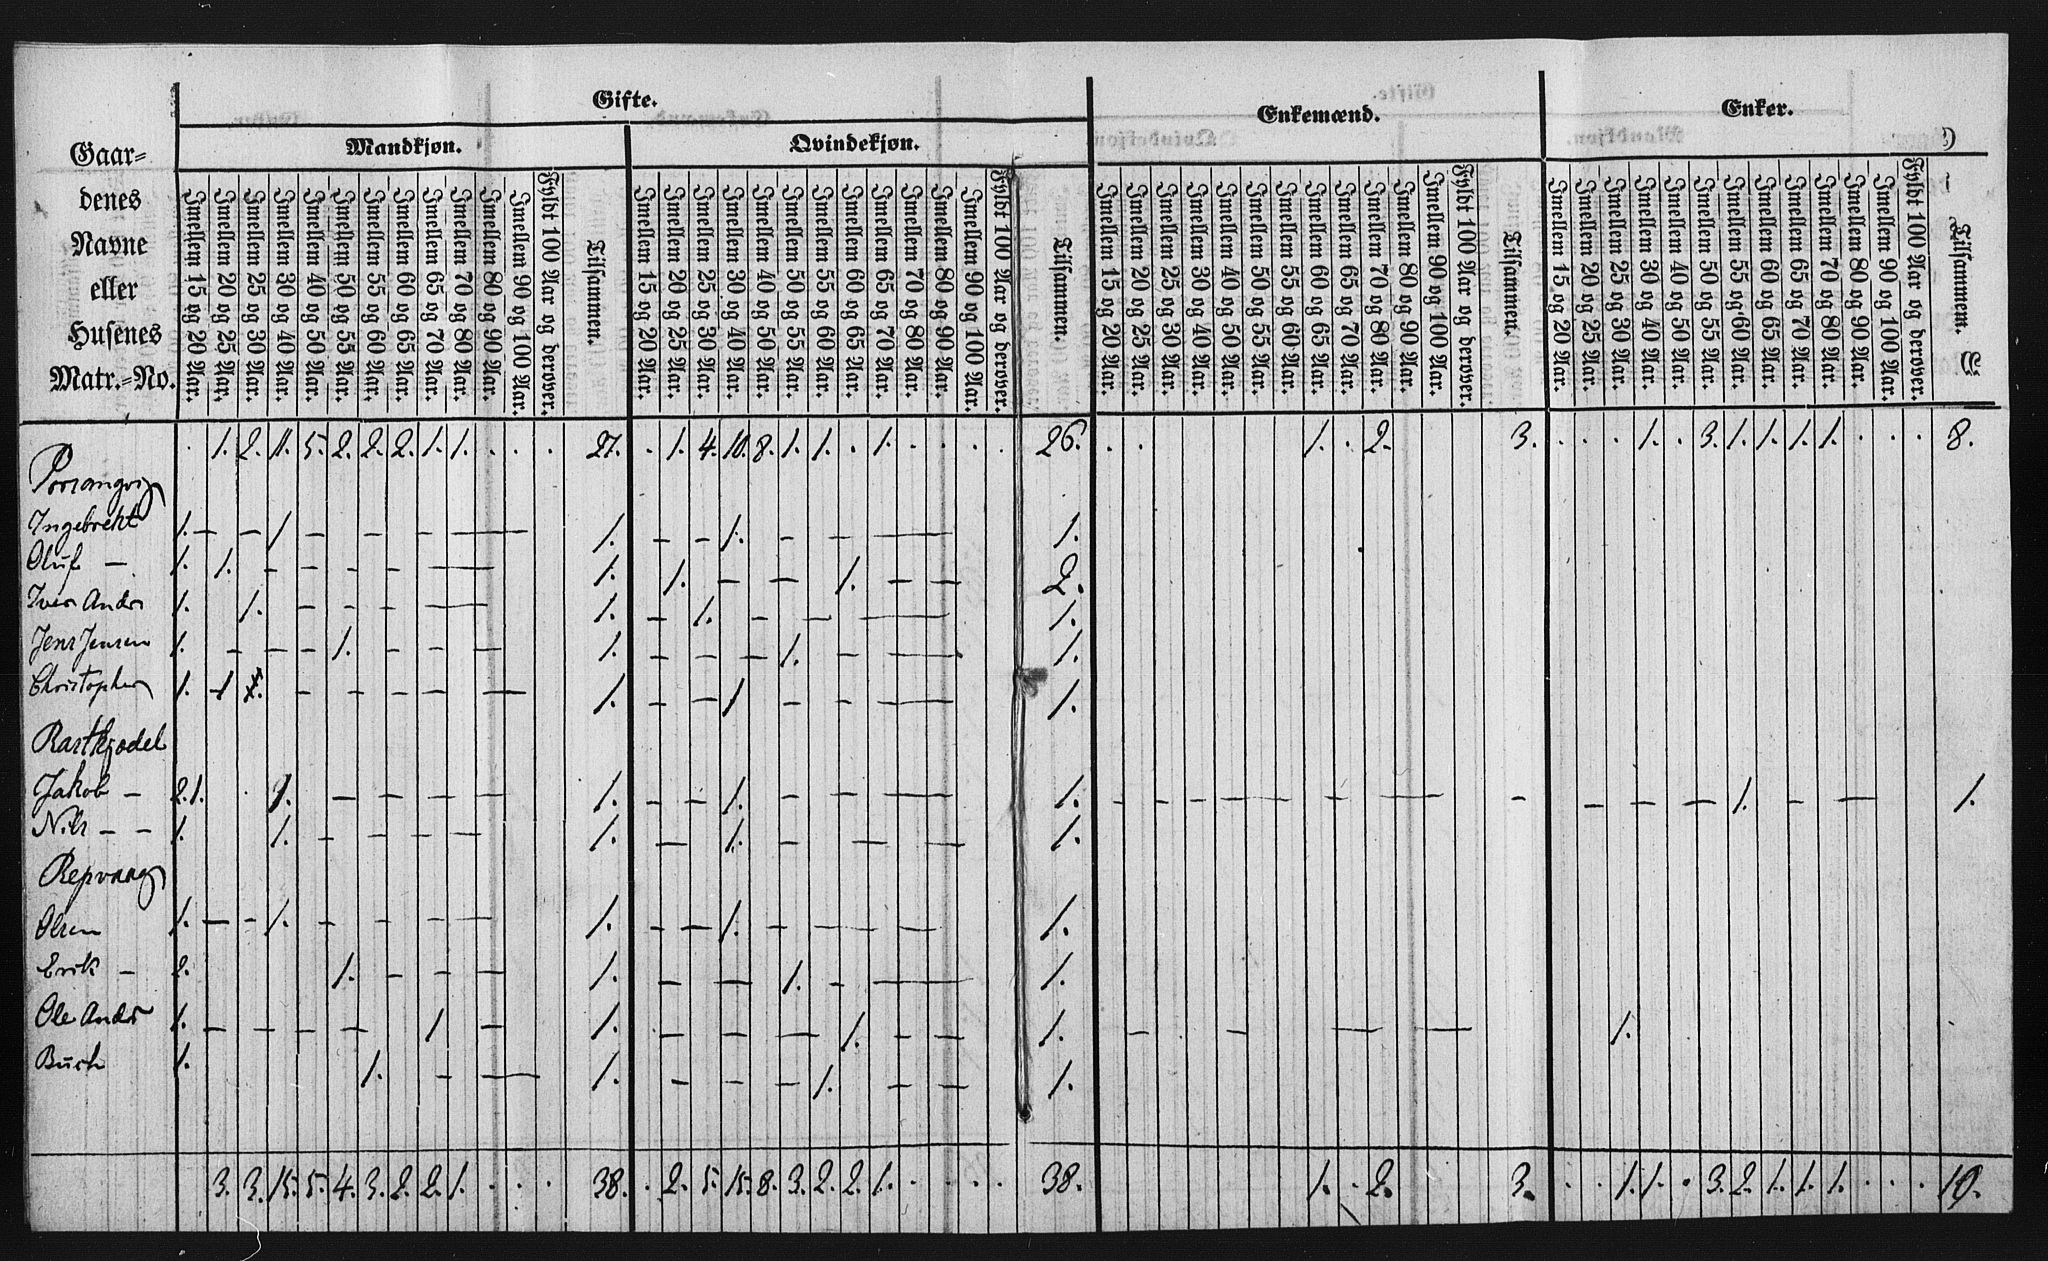 Gifte.
Enkemænd.
Enker.
Mandkjøn.
Qvindekjøn.
Gaar=
denes
Navne
eller
Husenes
Matr.=No.
Imellem 15 og 20 Aar.
Imellem 20 og 25 Aar.
Imellem 25 og 30 Aar.
Imellem 30 og 40 Aar.
Imellem 40 og 50 Aar.
Imellem 50 og 55 Aar.
Imellem 55 og 60 Aar.
Imellem 60 og 65 Aar.
Imellem 65 og 70 Aar.
Imellem 70 og 80 Aar.
Imellem 80 og 90 Aar.
Imellem 90 og 100 Aar.
Fyldt 100 Aar og derover.
Tilsammen.
Imellem 15 og 20 Aar.
Imellem 20 og 25 Aar.
Imellem 25 og 30 Aar.
Imellem 30 og 40 Aar.
Imellem 40 og 50 Aar.
Imellem 50 og 55 Aar.
Imellem 55 og 60 Aar.
Imellem 60 og 65 Aar.
Imellem 65 og 70 Aar.
Imellem 70 og 80 Aar.
Imellem 80 og 90 Aar.
Imellem 90 og 100 Aar.
Fyldt 100 Aar og derover.
Tilsammen.
Imellem 15 og 20 Aar.
Imellem 20 og 25 Aar.
Imellem 25 og 30 Aar.
Imellem 30 og 40 Aar.
Imellem 40 og 50 Aar.
Imellem 50 og 55 Aar.
Imellem 55 og 60 Aar.
Imellem 60 og 65 Aar.
Imellem 65 og 70 Aar.
Imellem 70 og 80 Aar.
Imellem 80 og 90 Aar.
Imellem 90 og 100 Aar.
Fyldt 100 Aar og derover.
Tilsammen.
Imellem 15 og 20 Aar.
Imellem 20 og 25 Aar.
Imellem 25 og 30 Aar.
Imellem 30 og 40 Aar.
Imellem 40 og 50 Aar.
Imellem 50 og 55 Aar.
Imellem 55 og 60 Aar.
Imellem 60 og 65 Aar.
Imellem 65 og 70 Aar.
Imellem 70 og 80 Aar.
Imellem 80 og 90 Aar.
Imellem 90 og 100 Aar.
Fyldt 100 Aar og derover.
Tilsammen.
. 1. 2. 11. 5. 2. 2. 2. 1. 1. . . . 27. . 1. 4. 10. 8. 1. 1. . 1. . . . 26. . . 1. . 2. 3. . . . 1. . 3. 1. 1. 1. 1. . . . 8.
Porsangvig
Ingebrekt 1. – – 1 – – – – — 1. – – 1. – – — 1.
Oluf – 1. 1. – – – – — 1. 1. – – 1. – – 2.
Iver Andr 1. 1. – – – — 1. – 1. – – — 1.
Jens Jensen 1. – – – 1. – – – 1. – – – 1. – — 1.
Christopher 1. 1 – – – – – — 1. – – 1 – – — 1.
Rastkjodel
Jakob – 2. 1. . 1. – – – – 1. – – 1. – – — 1. – – – — – — – – – – 1. – – 1.
Nils – – 1. 1. – – – – 1. – 1. – – – 1.
Repvaag
Olsen 1. – – 1. – – – – 1. – – 1. – – – – 1.
Erik – 2. 1. – – – 1. – – 1. – — 1.
Ole Andr 1. – – – – 1 – 1. – – – 1. – – 1. – – – — 1.
Buch 1. 1. – — 1. – – – 1. – – 1.
3. 3. 15. 5. 4. 3. 2. 2. 1. . . . 38. . 2. 5. 15. 8. 3. 2. 2. 1. . . . . 38. 1. . 2. 3. . . 1. 1. . 3. 2. 1. 1. 1. . . . 10.